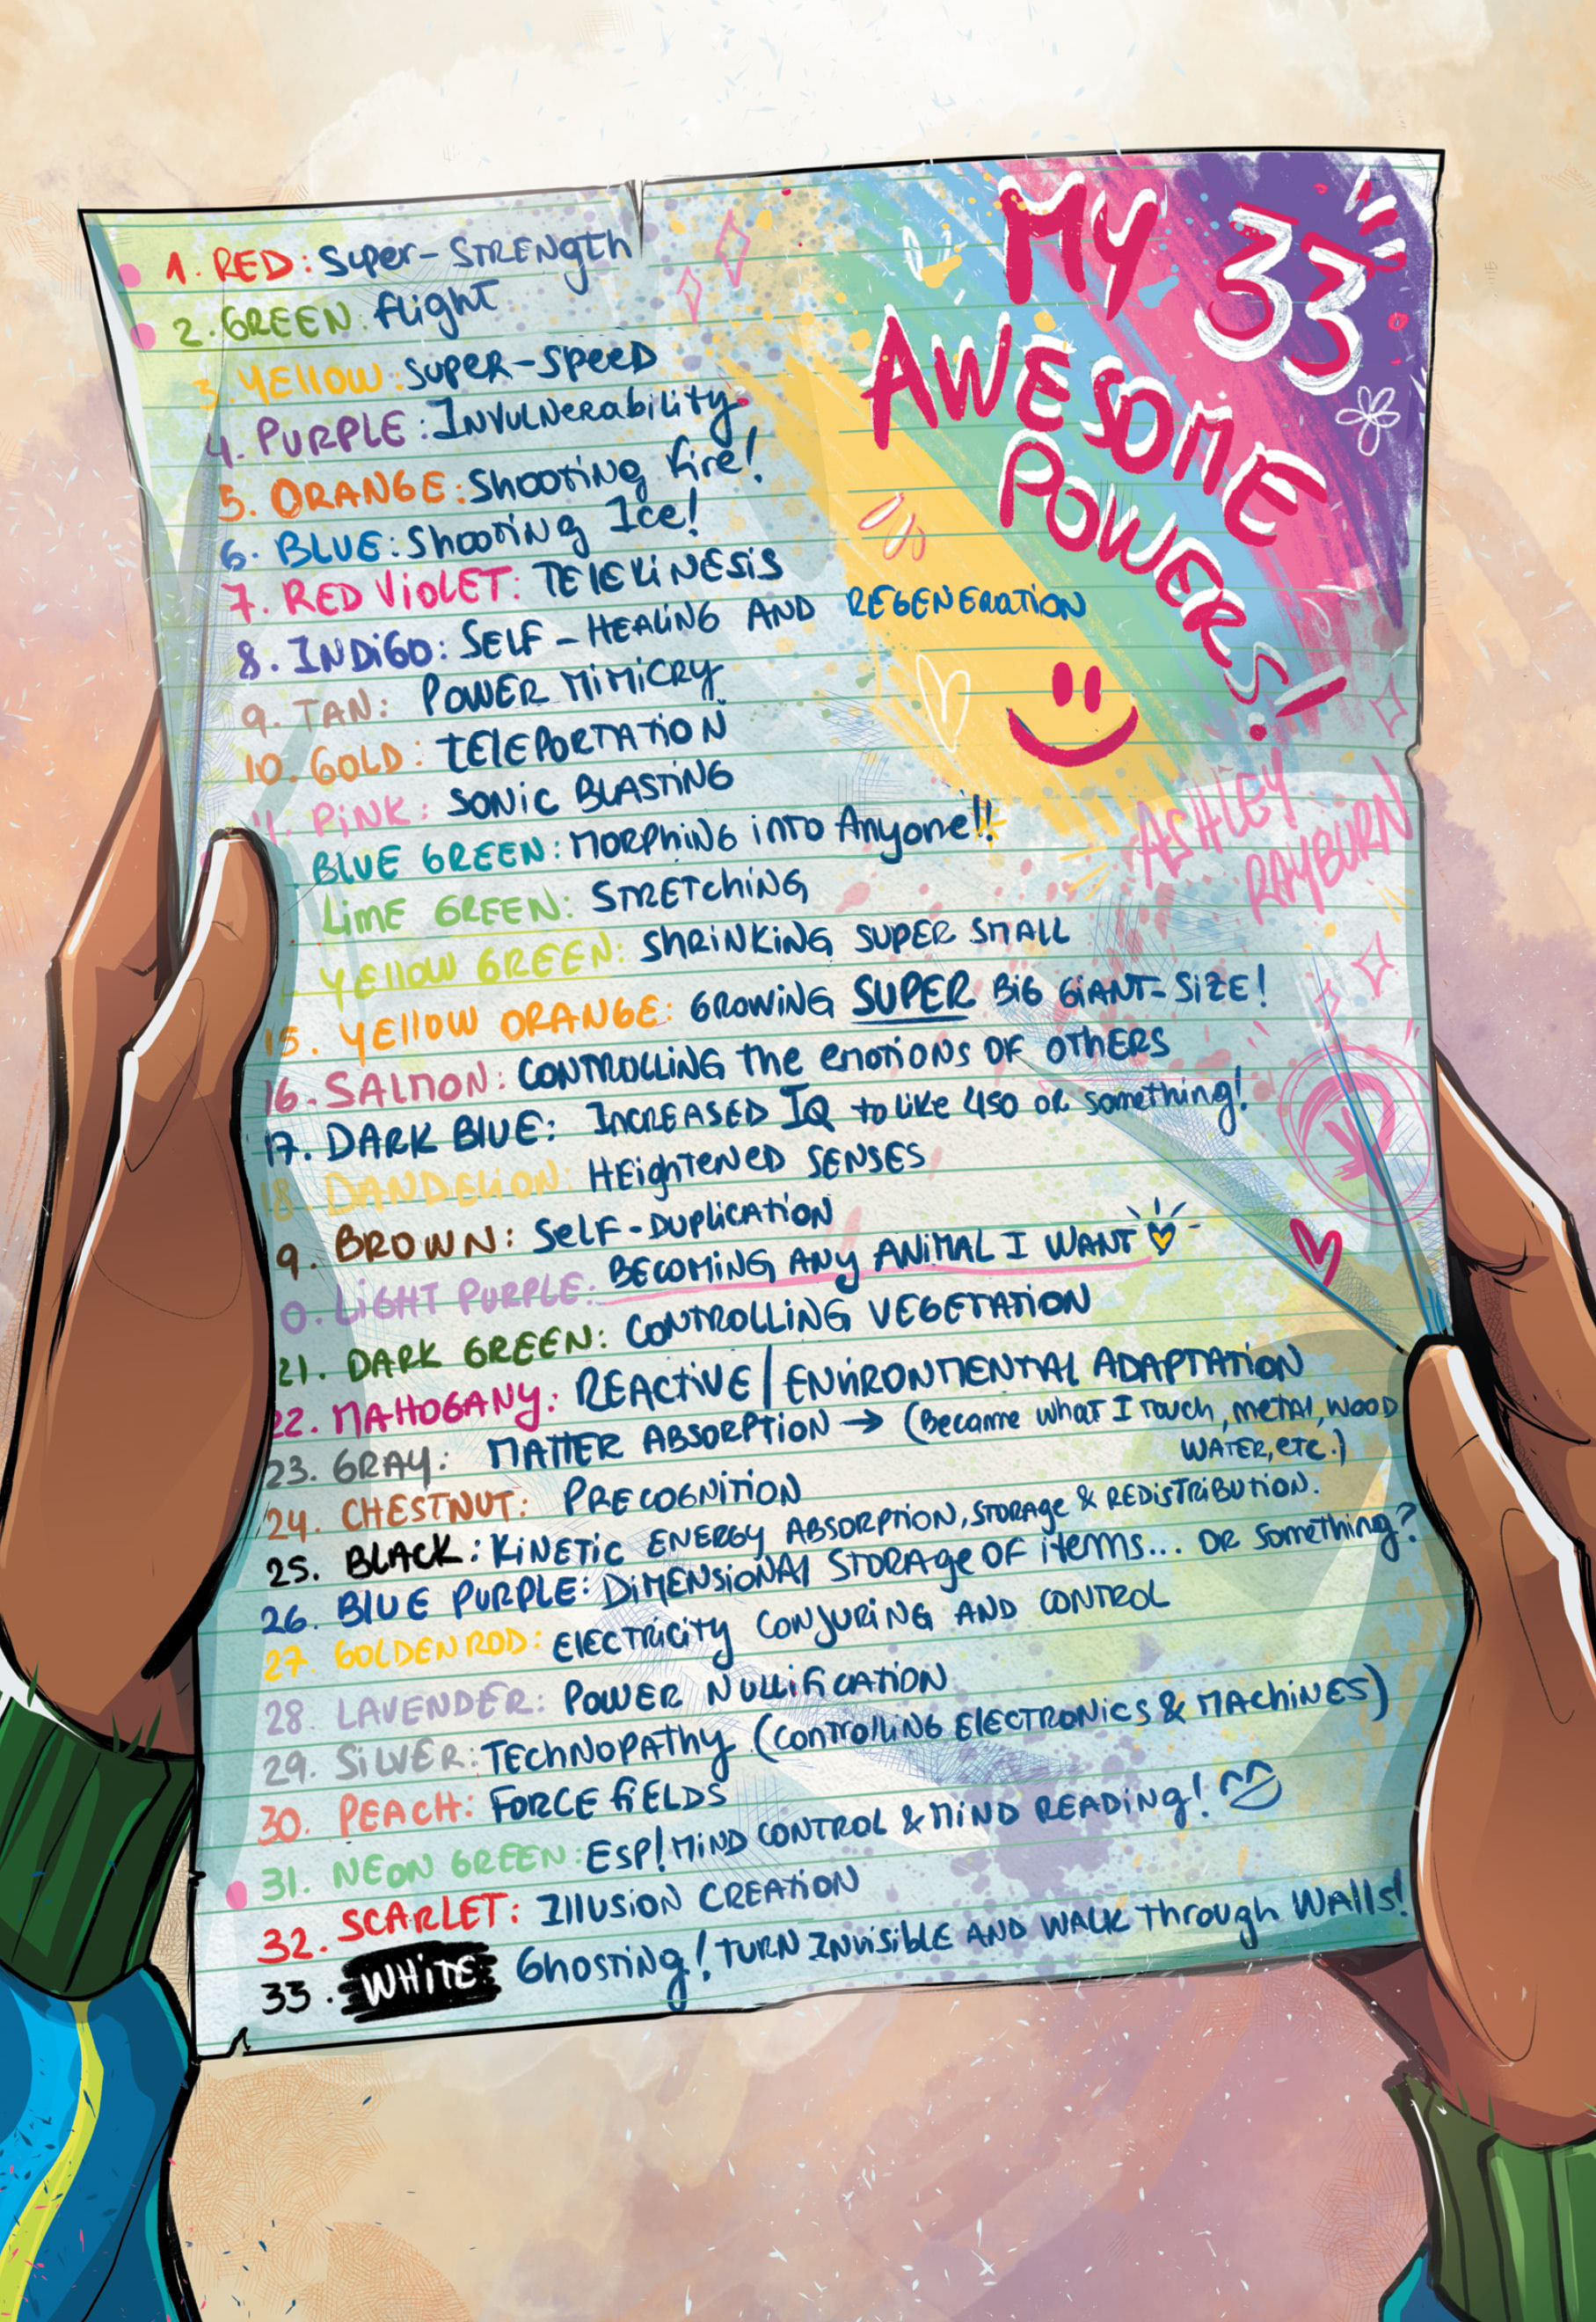 MY 33
AWESOME
POWERS!
ASHLEY
RAYBURN
1. RED: Super-STRENgth
2. GREEN: flight
3. YEllOW: SUPER-SPEED
4. PURPLE: INVULNerability
5. ORANGE: Shooting fire!
6. BLUE: Shooting Ice!
7. RED VIOLET: TELEKINESIS
8. INDIGO: SELF-HEALING AND REGENERATION
9. TAN: POWER MIMICRY
10. GOLD: TELEPORTATION
11. PINK: SONIC BLASTING
BLUE GREEN: MORPHING INTO Anyone!!
LIME GREEN: STRETChING
YEllOW GREEN: ShRINKING SUPER SMALL
15. YEllOW ORANGE: GROWING SUPER BIG GIANT-SIZE!
16. SALMON: CONTROLLING the emotions OF OTHERS
17. DARK BLUE: INCREASED IQ to like 450 or something!
18. DANDELION: HEIghTENED SENSES
9. BROWN: SELF-DUPLICATION
0. LIGHT PURPLE: BECOMING ANy ANIMAL I WANT
21. DARK GREEN: CONTROLLING VEGETATION
22. MAHOGANY: REACTIVE/ENVIRONMENTAL ADAPTATION
23. GRAY: MATTER ABSORPTION → (Became what I touch, metal, WOOD
WATER, etc.)
24. CHESTNUT: PRECOGNITION
25. BLACK: KINETIC ENERGY ABSORPTION, STORAGE & REDISTRIBUTION.
26. BLUE PURPLE: DIMENSIONAl STORAGE OF items... OR Something?
27. GOLDENROD: ElECTRICITY CONJURING AND CONTROL
28. LAVENDER: POWER NULLIFICATION
29. SILVER: TEChNOPAThy (Controlling ElECTRONICS & MAChINES)
30. PEACH: FORCE fiELDS
31. NEON GREEN: ESP! MIND CONTROL & MIND READING!
32. SCARLET: IllUSION CREATION
33. WHITE Ghosting! TURN INVISIBLE AND WALK through WAlls!